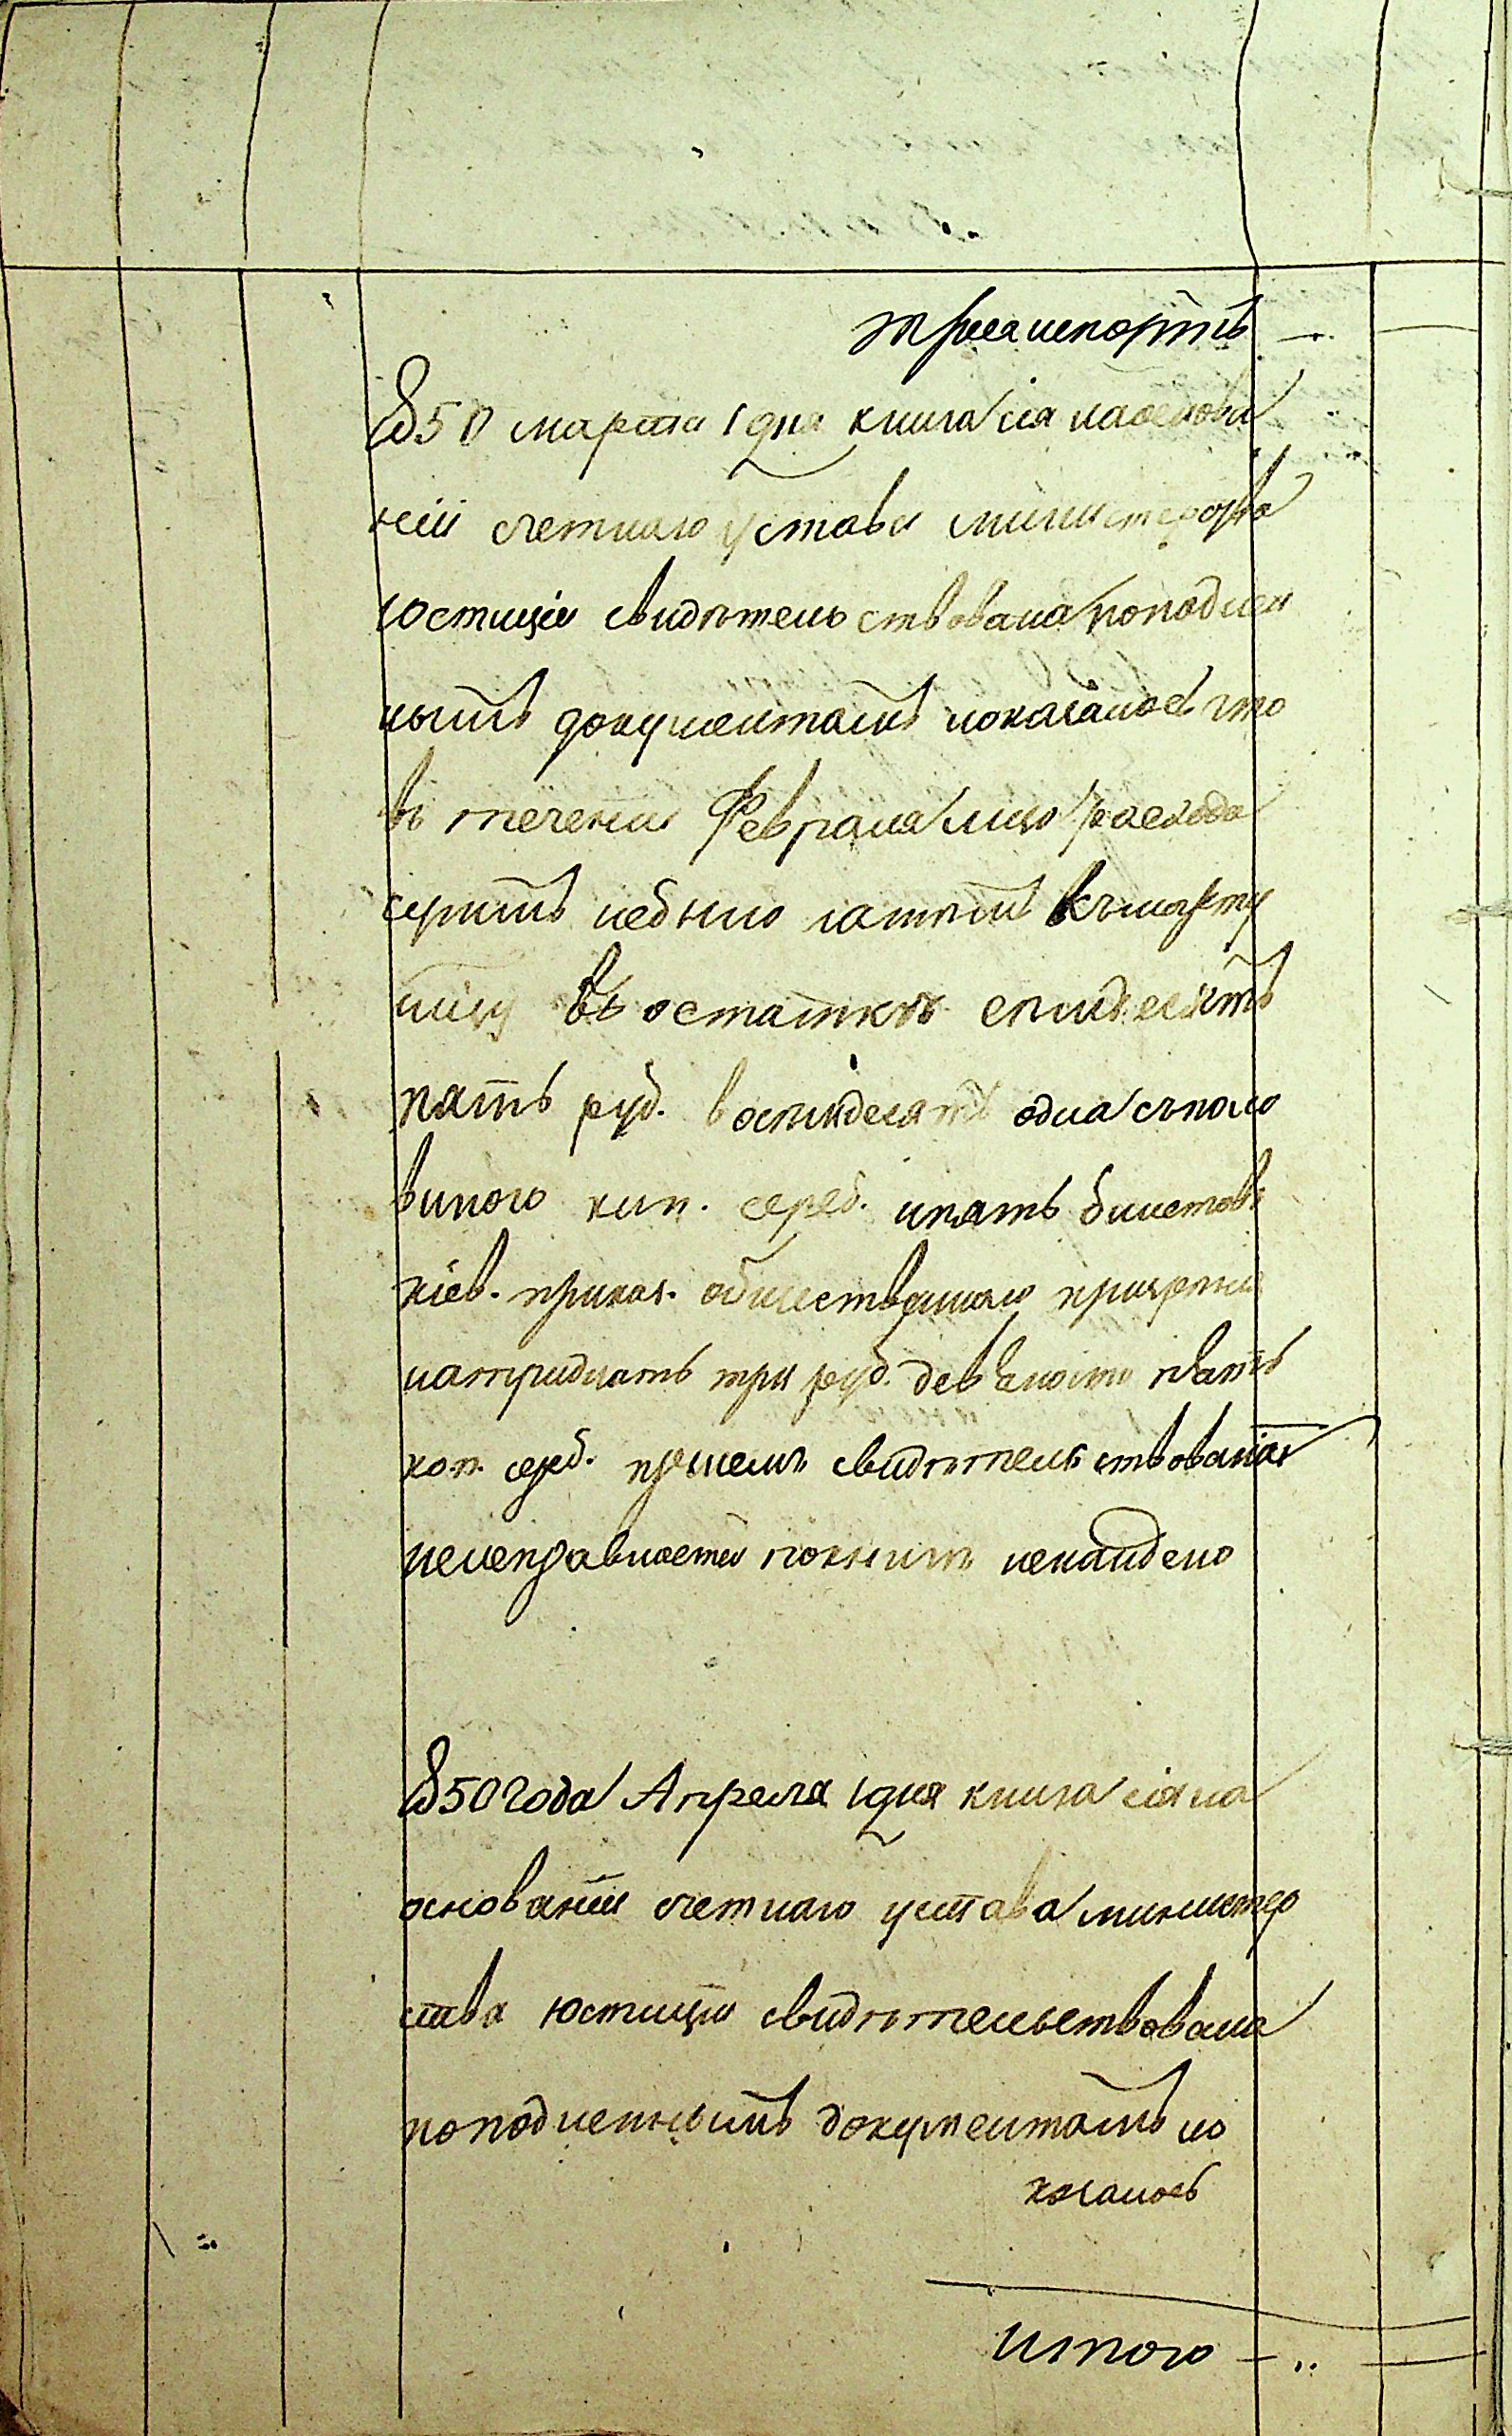 транспортъ
1850 марта 1 дня книга сія наоснова
ніи счетнаго устава министерства
юстиціи свидѣтельствована поподлин
нымъ документамъ иоказалось что
въ теченіи Февраля мцо расхода
суммъ небыло затѣмъ къ марту
мцу въ остаткѣ семьдесятъ
пять руб. восемдесятъ одна съполо
виною коп. сереб. ипять билетовъ
кіев. приказ. общественнаго призренія
натридцать три руб. девяносто пять
коп. сереб. причемъ свидѣтельствованія
неисправности покнигѣ ненайдено
1850 года Апреля 1 дня книга сія на
основаніи счетнаго устава министер
ства юстиціи свидѣтельствована
поподлиннымъ документамъ ио
казалось
итого